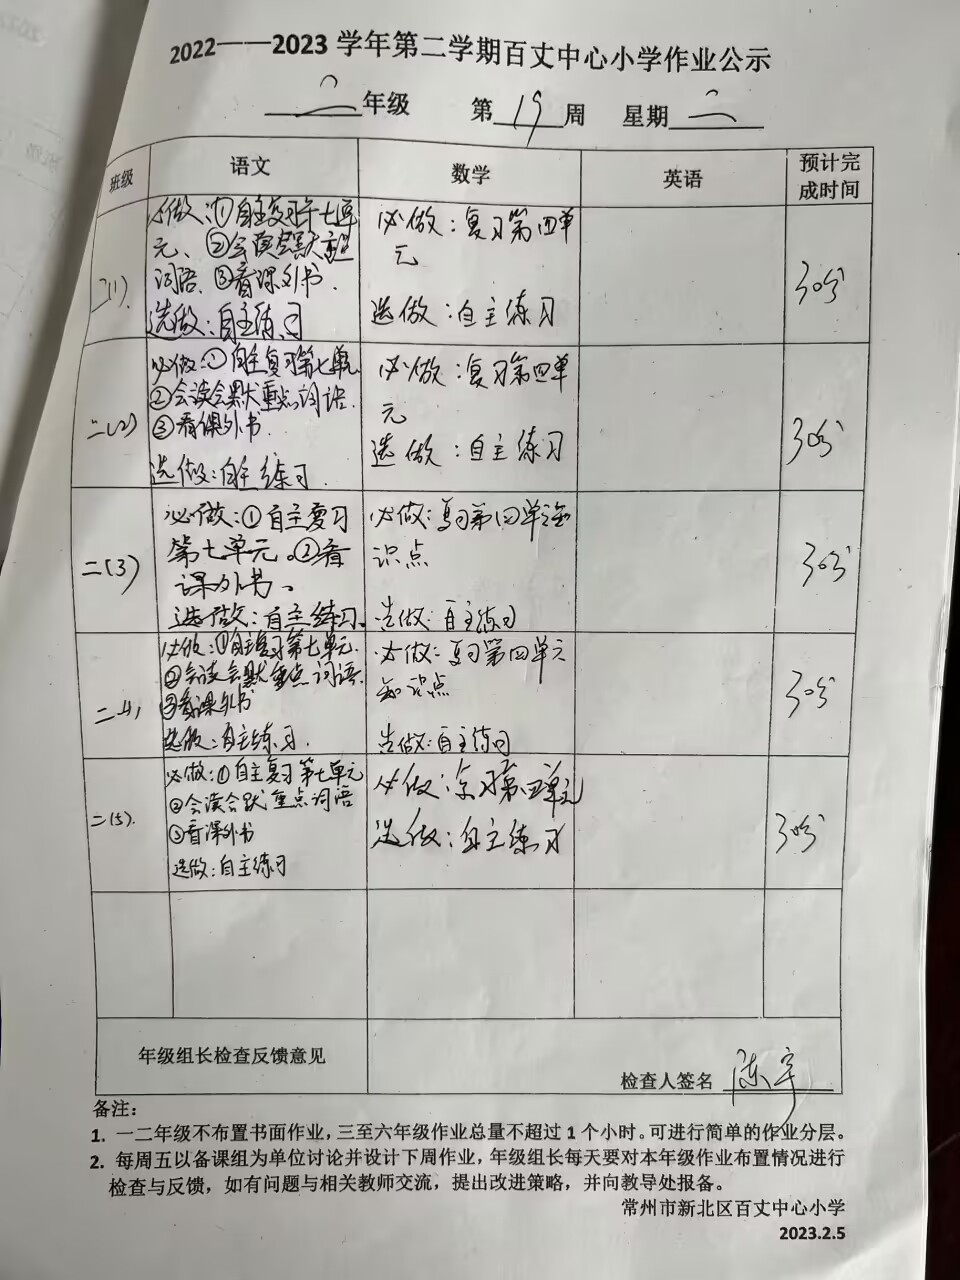 2022——2023 学年第二学期百丈中心小学作业公示
二 年级 第 19 周 星期 二
班级 语文 数学 英语 预计完成时间
二(1)
必做:①自主复习第七单
元、②会读会默重点
词语、③看课外书.
选做:自主练习
必做:复习第四单
元
选做:自主练习
30分
二(2)
必做:①自主复习第七单元
②会读会默重点词语.
③看课外书.
选做:自主练习.
必做:复习第四单
元
选做:自主练习
30分
二(3)
必做:①自主复习
第七单元.②看
课外书、
选做:自主练习.
必做:复习第四单元知
识点
选做:自主练习
30分
二(4)
必做:①自主复习第七单元.
②会读会默重点词语.
③看课外书
选做:自主练习.
必做:复习第四单元
知识点
选做:自主练习
30分
二(5).
必做:①自主复习第七单元
②会读会默重点词语
③看课外书
选做:自主练习
必做:复习第四单元
选做:自主练习
30分
年级组长检查反馈意见
检查人签名 陈宇
备注:
1. 一二年级不布置书面作业,三至六年级作业总量不超过 1 个小时。可进行简单的作业分层。
2. 每周五以备课组为单位讨论并设计下周作业,年级组长每天要对本年级作业布置情况进行
检查与反馈,如有问题与相关教师交流,提出改进策略,并向教导处报备。
常州市新北区百丈中心小学
2023.2.5